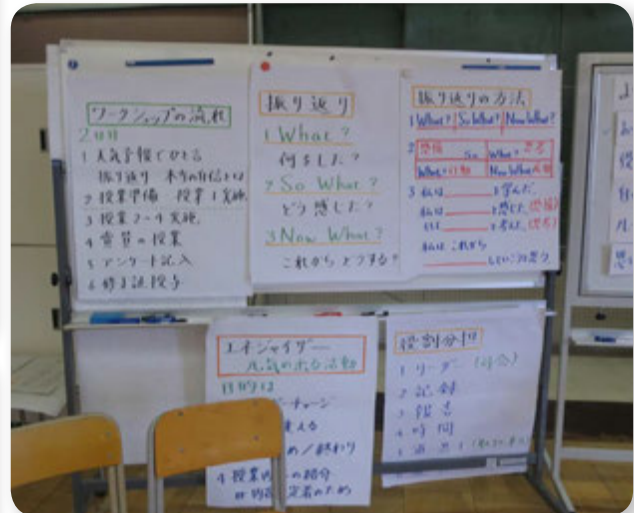 ワークショップの流れ
2日目
1 天気予報でひと言
振り返り 本当の自信とは
2 授業準備 授業1実施
3 授業2〜4実施
4 の授業
5 アンケート記入
6 修了証授与
振り返り
1 What?
何をした?
2 So What?
どう感じた?
3 Now What?
これからどうする?
振り返りの方法
1 What? So What? Now What?
2
So What=思考
Now What
3 私は と学んだ
私は と感じた
と考えた
私はこれから
していこうと思う
エネジャイザー
元気の出る活動
目的は
チャージ
变える
め/終わり
4 授業内 の紹介
役割分担
1 リーダー (司会)
2 記録
3 報告
4 時間
5